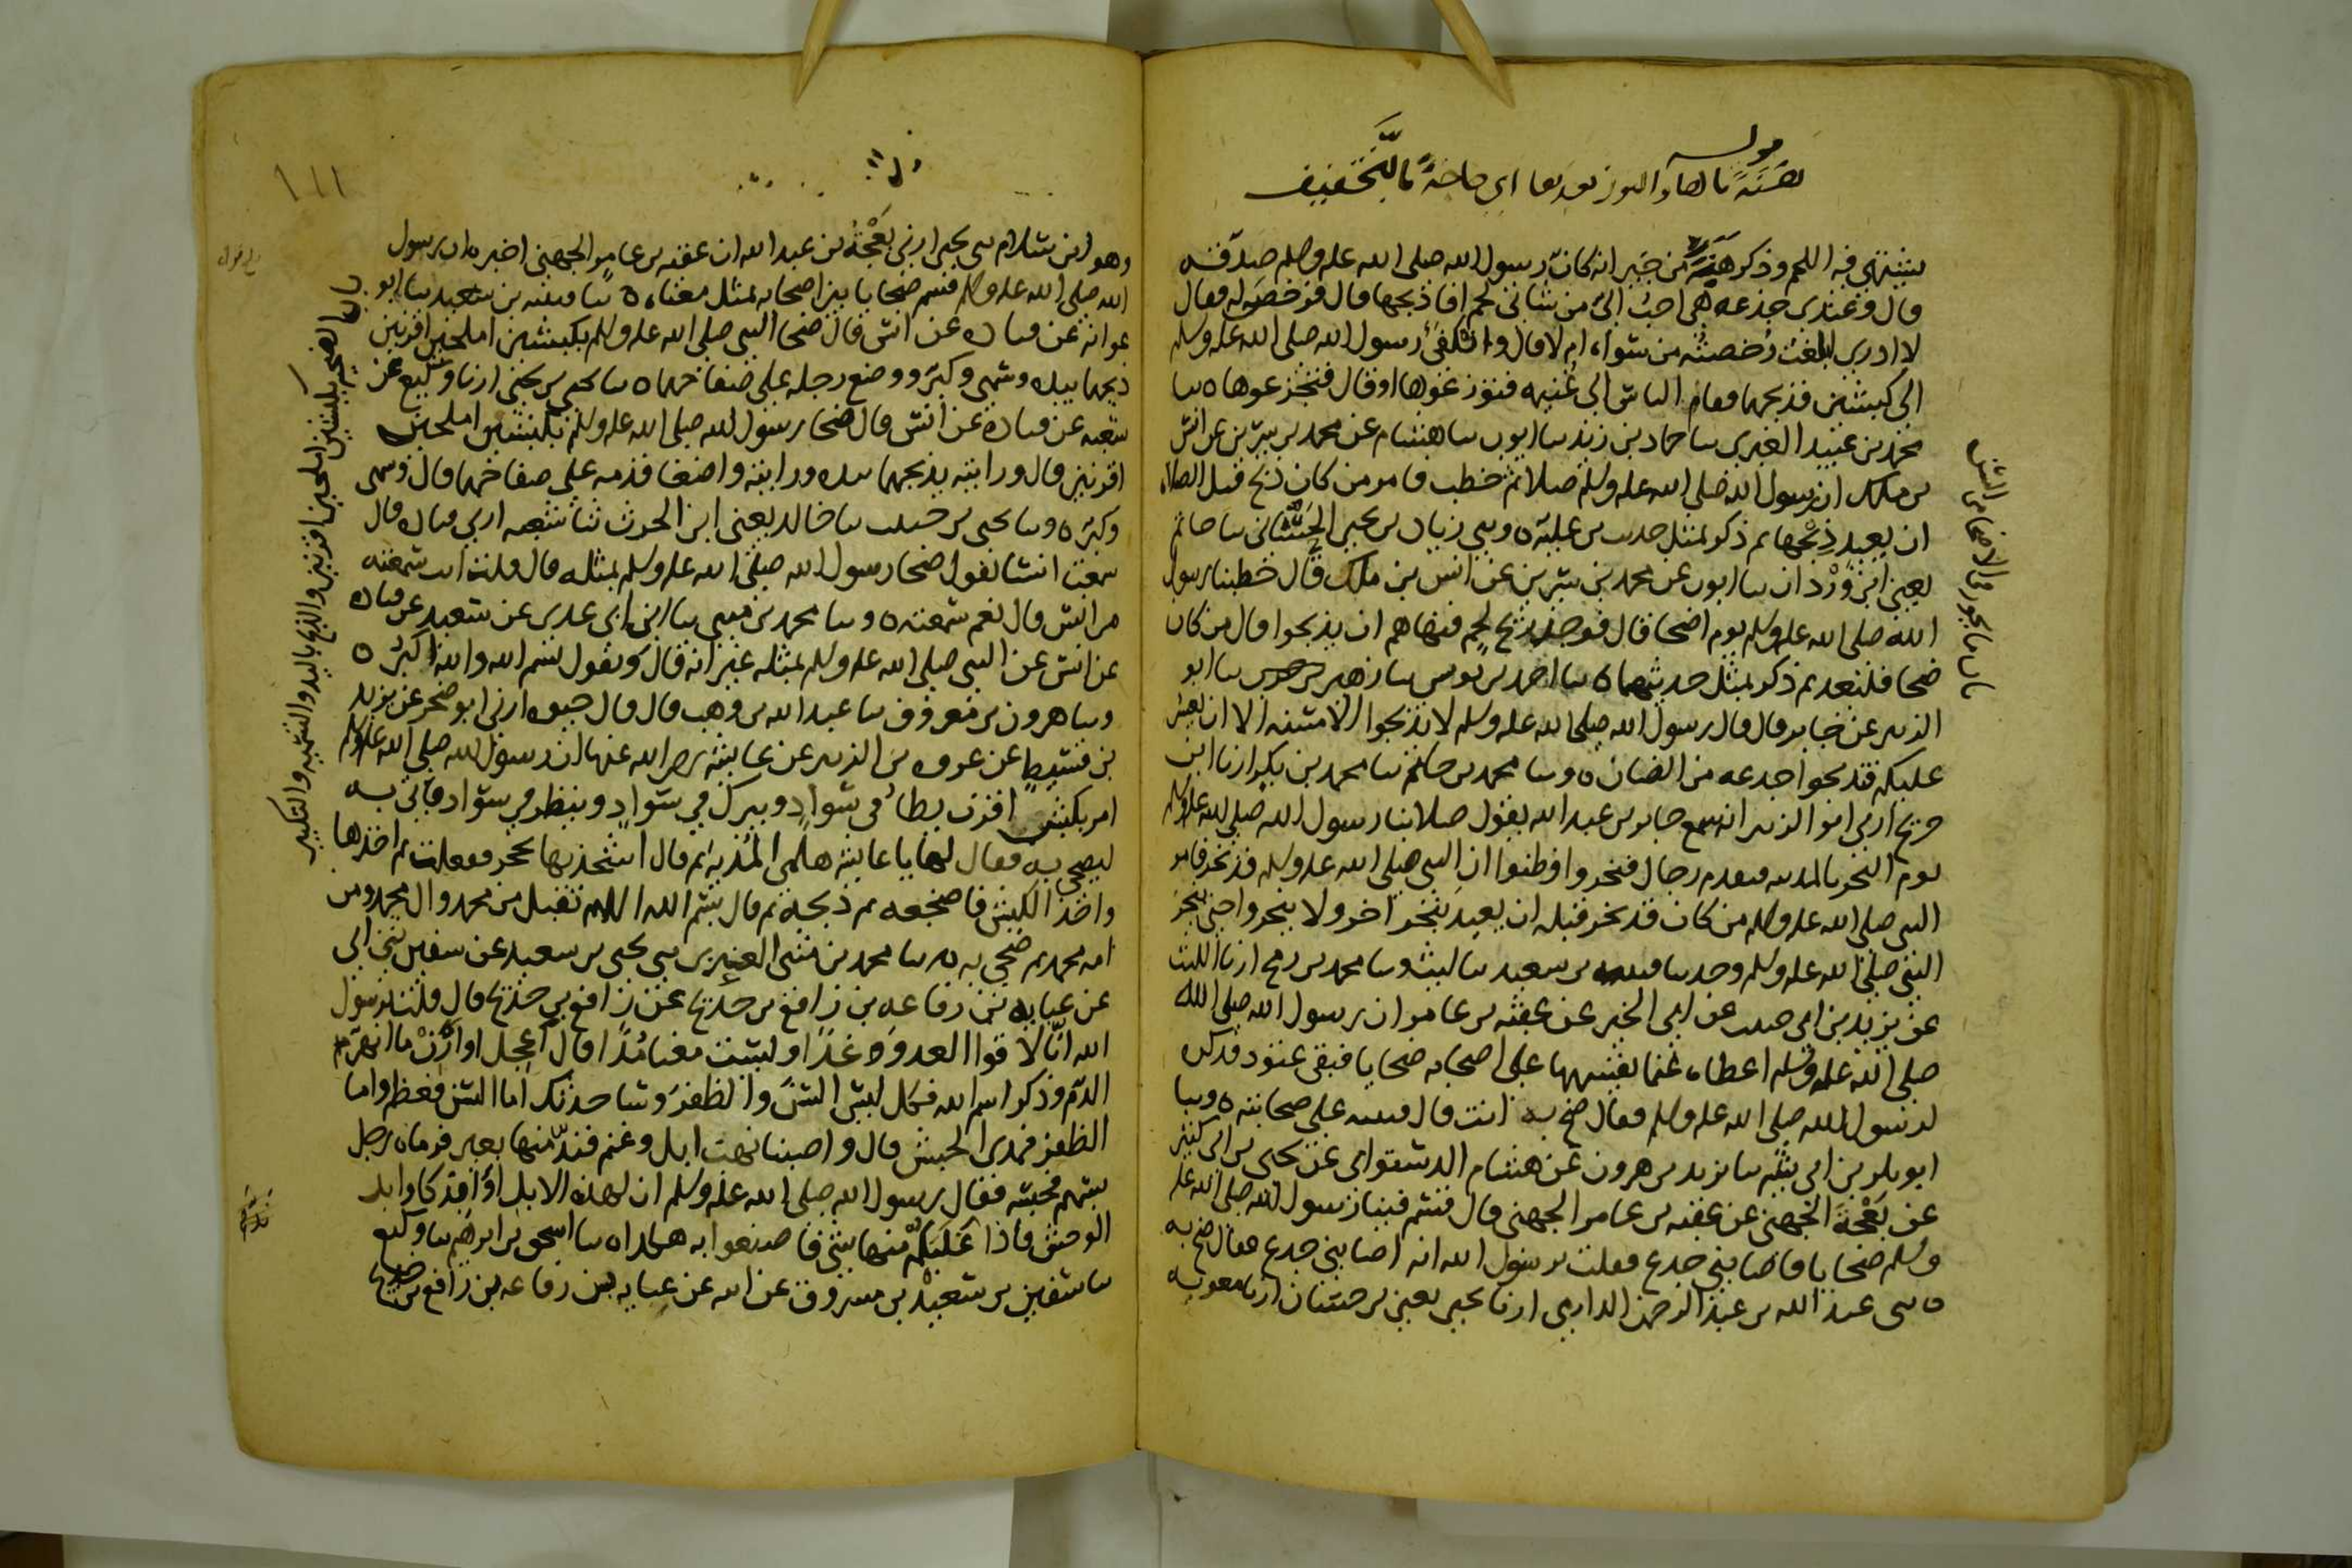 هنة بالها والنون بعدها اي حاجة بالتخفيف
يشتهى فيه اللحم وذكر هنة من جيرانه كان رسول الله صلى الله عليه وسلم صدقه
قال وعندي جذعة هي احب الي من شاتي لحم افاذبحها قال فرخص له فقال
لا ادري ابلغت رخصته من سواه ام لا قال وانكفئ رسول الله صلى الله عليه وسلم
الى كبشين فذبحهما فقام الناس الى غنيمه فتوزعوها او قال فتجزعوها ه ثنا
محمد بن عبيد الغبري ثنا حماد بن زيد ثنا ايوب ثنا هشام عن محمد بن سيرين عن انس
بن ملك ان رسول الله صلى الله عليه وسلم صلا ثم خطب فامر من كان ذبح قبل الصلاه
ان يعيد ذبحها ثم ذكر بمثل حديث بن علية ه وثني زياد بن يحيى الحساني ثنا حاتم
يعني ابن وردان ثنا ايوب عن محمد بن سيرين عن انس بن ملك قال خطبنا رسول
الله صلى الله عليه وسلم يوم اضحا قال فوجد ريح لحم فنهاهم ان يذبحوا قال من كان
ضحا فليعد ثم ذكر بمثل حديثهما ه ثنا احمد بن يونس ثنا زهير ثنا ابو
الزبير عن جابر قال قال رسول الله صلى الله عليه وسلم لا تذبحوا الا مسنه الا ان يعسر
عليكم فتذبحوا جذعه من الضان ه وثنا محمد بن حاتم ثنا محمد بن بكر ارنا ابن
جريج ارني ابو الزبير انه سمع جابر بن عبد الله يقول صلا بنا رسول الله صلى الله عليه وسلم
يوم النحر بالمدينه فتقدم رجال فنحروا وظنوا ان النبي صلى الله عليه وسلم قد نحر فامر
النبي صلى الله عليه وسلم من كان قد نحر قبله ان يعيد بنحر اخر ولا ينحروا حتى ينحر
النبي صلى الله عليه وسلم وحدثنا قتيبه بن سعيد ثنا ليث وثنا محمد بن رمح ارنا الليث
عن يزيد بن ابي حبيب عن ابي الخير عن عقبة بن عامر ان رسول الله صلى الله
صلى الله عليه وسلم اعطاه غنما يقسمها على اصحابه ضحايا فبقي عتود فذكره
لرسول الله صلى الله عليه وسلم فقال ضح به انت قال قتيبه على صحابته ه وثنا
ابو بكر بن ابي شيبه ثنا يزيد بن هرون عن هشام الدستوائي عن يحيى بن ابي كثير
عن بعجة الجهني عن عقبه بن عامر الجهني قال قسم فينا رسول الله صلى الله عليه
وسلم ضحايا فاصابني جذع فقلت يرسول الله انه اصابني جذع فقال ضح به
ه ثني عبد الله بن عبد الرحمن الدارمي ارنا يحيى يعني بن حسان ارنا معويه
باب ما يجوز في الاضاحي من السن
١١١
وهو ابن سلام ثني يحيى ارني بعجة بن عبد الله ان عقبه بن عامر الجهني اخبره ان رسول
الله صلى الله عليه وسلم قسم ضحايا بين اصحابه بمثل معناه ه ثنا قتيبه بن سعيد ثنا ابو
عوانه عن قتاده عن انس قال ضحا النبي صلى الله عليه وسلم بكبشين املحين اقرنين
ذبحهما بيده وسمى وكبر ووضع رجله على صفاحهما ه ثنا يحيى بن يحيى ارنا وكيع عن
شعبه عن قتادة عن انس قال ضحا رسول الله صلى الله عليه وسلم بكبشين املحين
اقرنين قال ورايته يذبحهما بيده ورايته واضعا قدمه على صفاحهما قال وسمى
وكبر ه وثنا يحيى بن حبيب ثنا خالد يعني ابن الحرث ثنا شعبه ارني قتاده قال
سمعت انسا يقول ضحا رسول الله صلى الله عليه وسلم بمثله قال قلت انت سمعته
من انس قال نعم سمعته ه وثنا محمد بن مثنى ثنا ابن ابي عدي عن سعيد عن قتاده
عن انس عن النبي صلى الله عليه وسلم بمثله غير انه قال ويقول بسم الله والله اكبر ه
وثنا هرون بن معروف ثنا عبد الله بن وهب قال قال حيوه ارني ابو صخر عن يزيد
بن قسيط عن عروه بن الزبير عن عايشة رضي الله عنها ان رسول الله صلى الله عليه وسلم
امر بكبش اقرن يطا في سواد ويبرك في سواد وينظر في سواد فاتي به
ليضحي به فقال لها يا عايشه هلمي المدية ثم قال اشحذيها بحجر ففعلت ثم اخذها
واخذ الكبش فاضجعه ثم ذبحه ثم قال بسم الله اللهم تقبل من محمد وال محمد ومن
امه محمد ثم ضحى به ه ثنا محمد بن مثنى العنزي ثني يحيى بن سعيد عن سفين ثني ابي
عن عبايه بن رفاعه بن رافع بن خديج عن رافع بن خديج قال قلت يرسول
الله انا لاقوا العدو غدا وليست معنا مدا قال اعجل او ارن ما انهر
الدم وذكر اسم الله فكل ليس السن والظفر وساحدثك اما السن فعظم واما
الظفر فمدى الحبش قال واصبنا نهب ابل وغنم فند منها بعير فرماه رجل
بسهم فحبسه فقال رسول الله صلى الله عليه وسلم ان لهذه الابل اوابد كاوابد
الوحش فاذا غلبكم منها شي فاصنعوا به هكذا ه ثنا اسحق بن ابرهيم ثنا وكيع
ثنا سفين بن سعيد بن مسروق عن ابيه عن عبايه بن رفاعه بن رافع بن خديج
باب الضحية بكبشين املحين اقرنين والذبح باليد والتسميه والتكبير